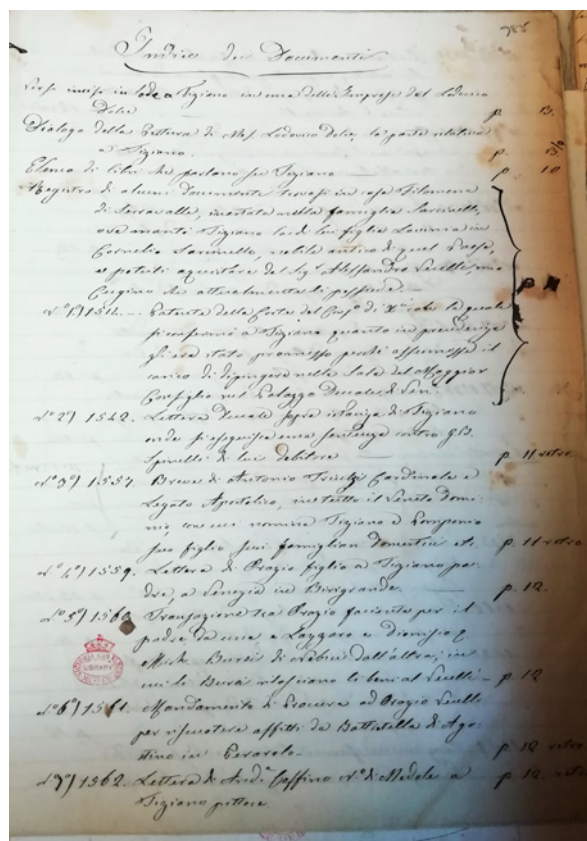 985
Indice dei Documenti
Versi incisi in lode a Tiziano in una delle Imprese del Lodovico
Dolce p. 13.
Dialogo della Pittura di Mes. Lodovico Dolce, la parte relativa
a Tiziano. p.
Elenco di libri che parlano su Tiziano — p. 10
Registro di alcuni Documenti trovasi in casa Filomena
di Serravalle, innestata nella famiglia Sarcinelli,
ove maritò Tiziano la di lui figlia Lavinia in
Cornelio Sarcinello, nobile antico di quel Paese,
e potuti acquistare del Sigr. Alessandro Vecelli mio
Cugino che attualmente li possiede. — p.
N.o 1o) 151 — Patente della Corte del Cons.o di X.ci colla quale
si confermò a Tiziano quanto in precedenza
gli era stato promesso perché assumesse il
carico di dipingere nella Sala del Maggior
Consiglio nel Palazzo Ducale di Ven.
N.o 2o) 1542. Lettera Ducale sopra istanza di Tiziano
onde si eseguisca una sentenza contro G.B.
Spinelli di lui debitore — p. 11 retro
N.o 3o) 1557. Breve di Antonio Cardinale e
Legato Apostolico, in tutto il Veneto Domi-
nio, con cui nomina Tiziano e Pomponio
suo figlio suoi famigliari domestici etc. p. 11 retro
N.o 4o) 1559. Lettera di Orazio figlio a Tiziano pa-
dre, a Venezia in Birigrande. — p. 12.
N.o 5o) 1560. Transazione tra Orazio faciente per il
padre da una e Lazzaro e Dionisio
dall'altra, in
cui li rilasciano li beni al Vecelli — p. 12
N.o 6o) 1561. Mandamento di Procura ad Orazio Vecelli
per riscuotere affitti da Battistella di Ago-
stino in Perarolo — p. 12 retro
N.o 7o) 1562. Lettera di And.a di Medole a p. 12. retro
Tiziano pittore.
LIBRARY